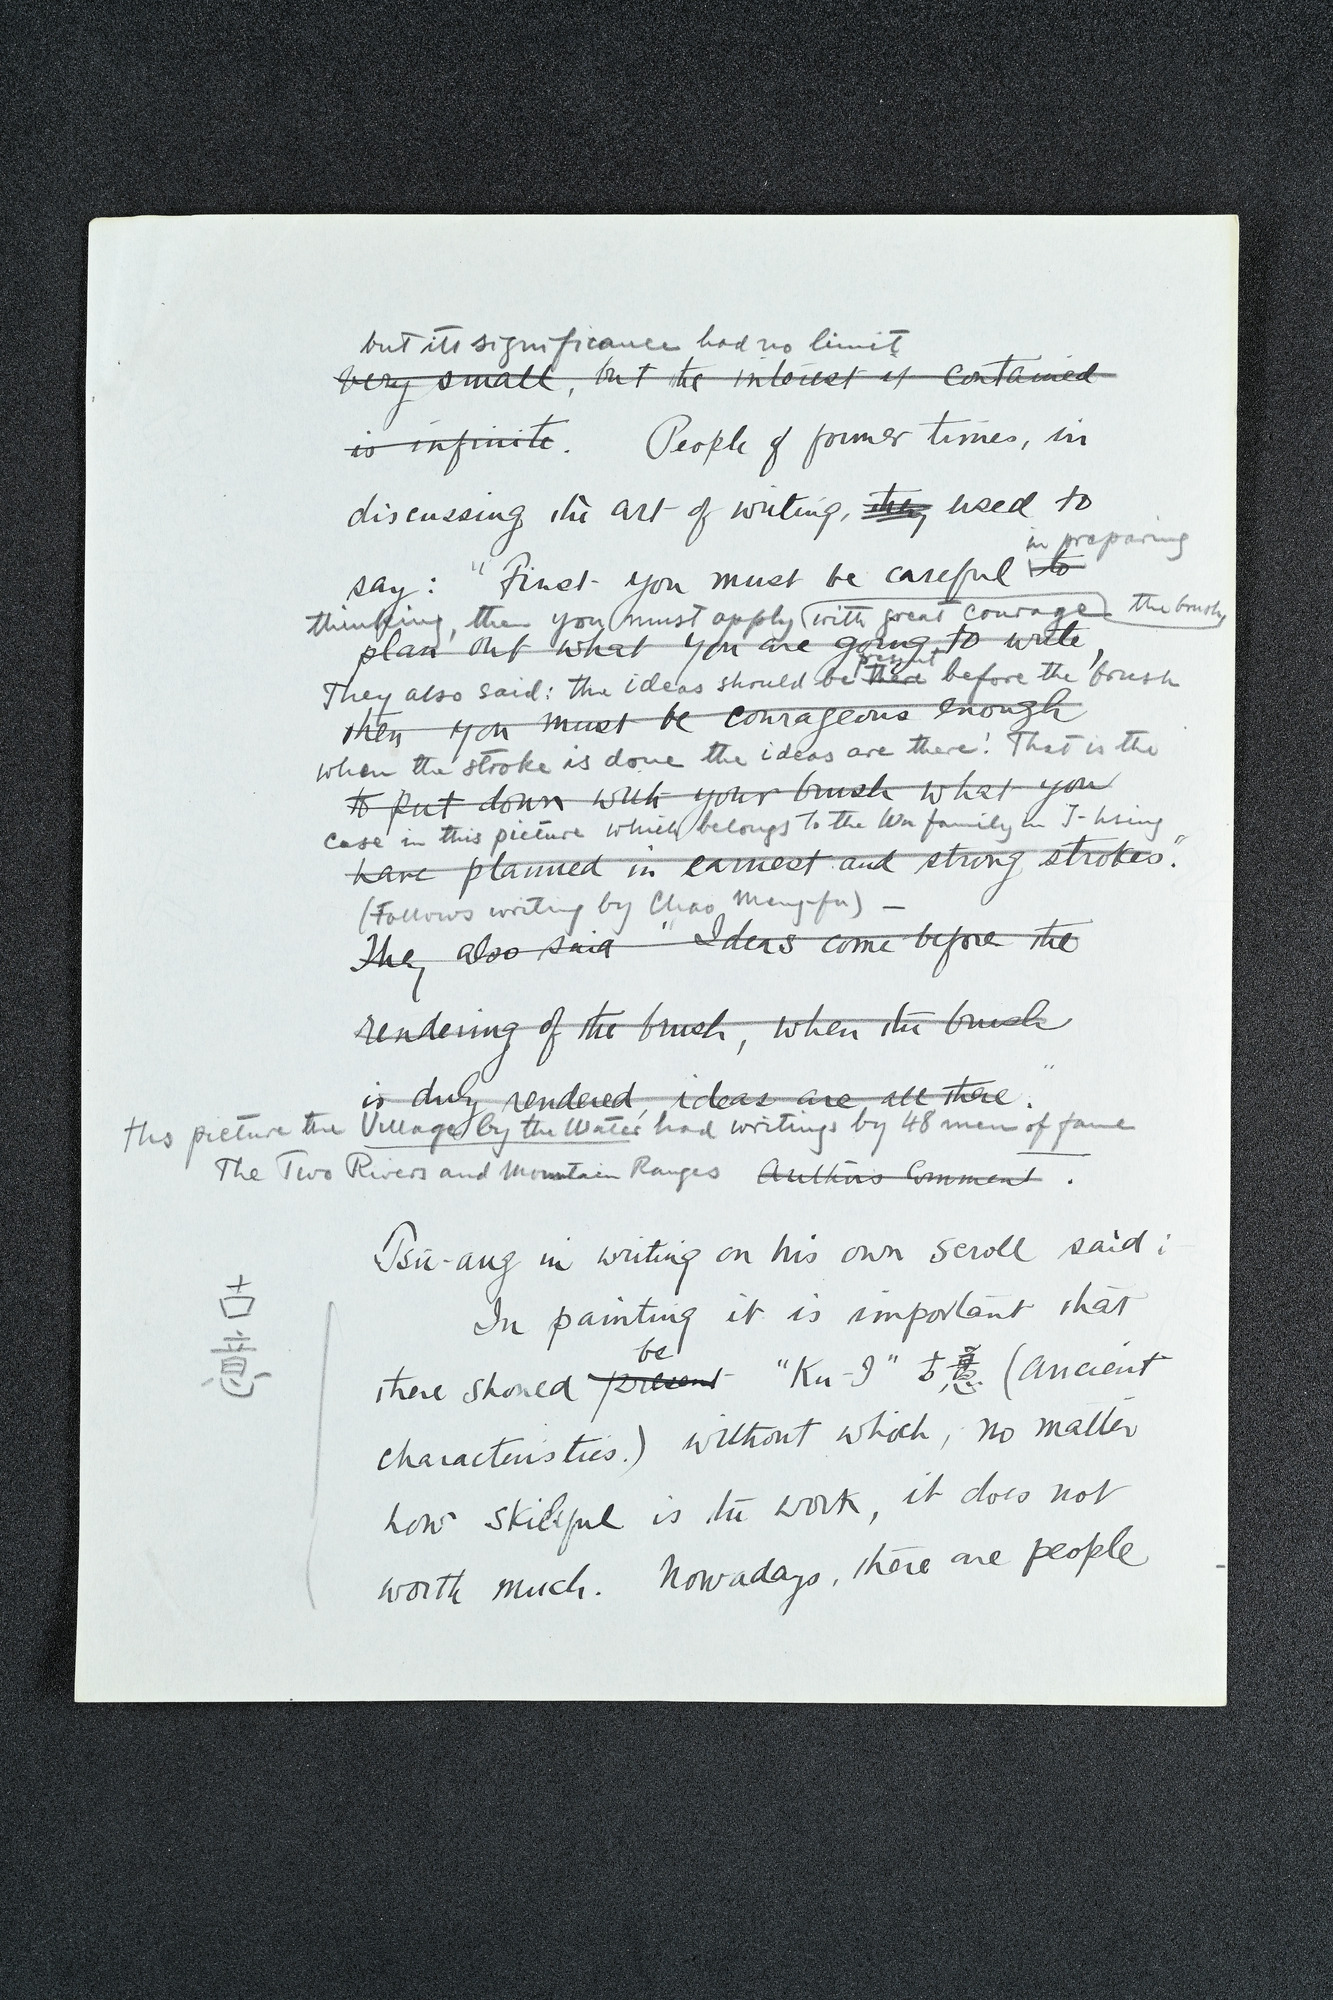 but its significance had no limit
very small, but the interest it contained
is infinite. People of former times, in
discussing the art of writing, they used to
in preparing
say: "First you must be careful to
thinking, then you must apply with great courage the brush,
plan out what you are going to write,
present
They also said: the ideas should be there before the brush
then you must be courageous enough
when the stroke is done the ideas are there! That is the
to put down with your brush what you
case in this picture which belongs to the Wu family in I-hsing
have planned in earnest and strong strokes."
(Follows writing by Chao Meng-fu) —
They also said "Ideas come before the
rendering of the brush, when the brush
is duly rendered, ideas are all there."
this picture the Village by the Water had writings by 48 men of fame
The Two Rivers and Mountain Ranges Author's Comment.
Tsu-ang in writing on his own scroll said:
In painting it is important that
be
there should present "Ku-I" 古意 (ancient
古意
characteristics.) without which, no matter
how skilful is the work, it does not
worth much. Nowadays, there are people